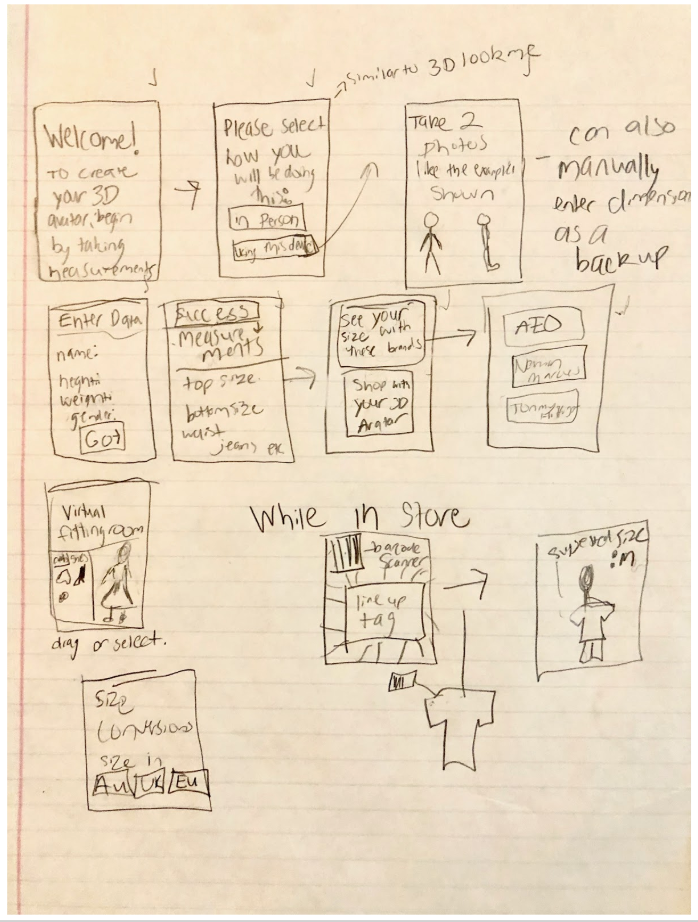 similar to 3D look me
Welcome!
To create
your 3D
avatar, begin
by taking
measurements
Please select
how you
will be doing
this:
in Person
using this device
Take 2
photos
like the examples
shown
can also
manually
enter dimension
as a
backup
Enter Data
name:
height:
weight:
gender:
Go!
success
Measure
ments
top size
bottom size
waist
jeans etc
See your
size with
these brands
Shop with
your 3D
Avatar
AEO
Virtual
fitting room
drag or select.
While in Store
barcode
scanner
line up
tag
size
: M
Size
Conversions
size in
Au UK Eu